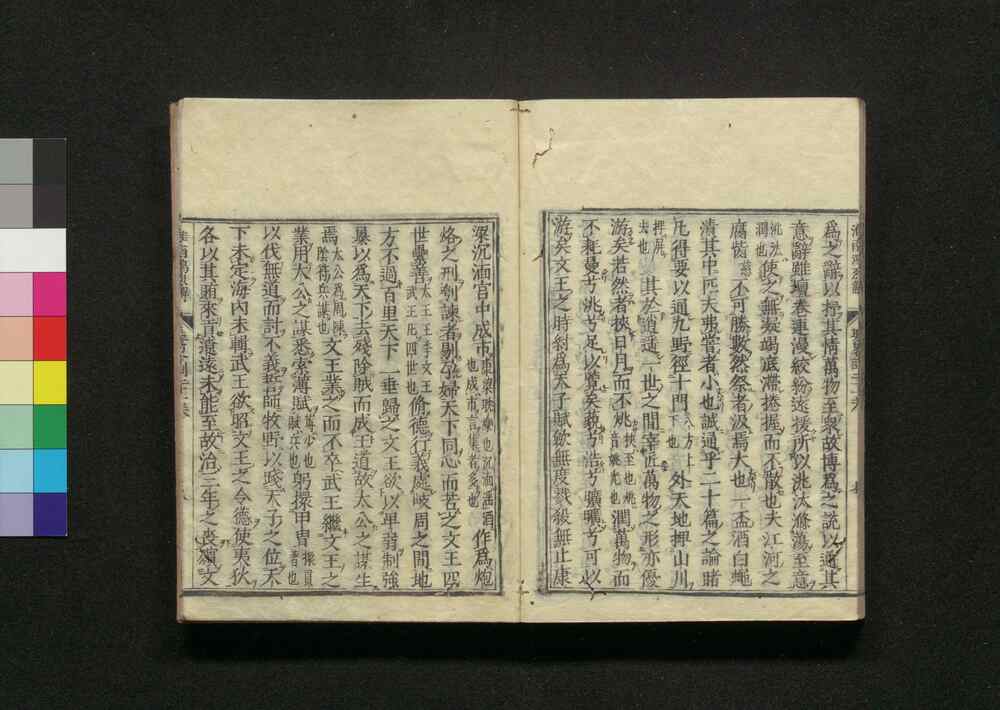 爲之辭以抒其情萬物至衆故博爲之說以通其
意辭雖壇卷連漫絞紛遠援所以洮汰滌蕩至意
洮汰潤也使之無凝竭底滯捲握而不散也夫江河之
腐胔不可勝數然祭者汲焉大也一盃酒白蠅
漬其中匹夫弗嘗者小也誠通乎二十篇之論睹
凡得要以通九野徑十門八方上下也外天地捭山川
捭屏去也其於逍遙一世之間宰匠萬物之形亦優
游矣若然者挾日月而不烑挾至也烑音姚光也潤萬物而
不耗曼兮洮兮足以覽矣藐兮浩兮曠曠兮可以
游矣文王之時紂爲天子賦歛無度戮殺無止康
梁沉湎宮中成市康梁耽樂也沉湎淫酒也成市言集者多也作爲炮
烙之刑刳諫者剔孕婦天下同心而苦之文王四
世纍善太王王季文王武王凡四世也脩德行義處岐周之間地
方不過百里天下二垂歸之文王欲以卑弱制強
暴以爲天下去殘除賊而成王道故太公之謀生
焉太公爲周陳陰符兵謀也文王業之而不卒武王繼文王之
業用太公之謀悉索薄賦薄少也賦兵也躬擐甲冑擐貫著也
以伐無道而討不義誓師牧野以踐天子之位天
下未定海內未輯武王欲昭文王之令德使夷狄
各以其賄來貢遼遠未能至故治三年之喪殯文